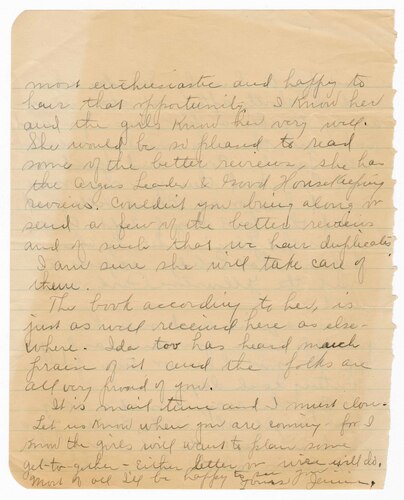 most enthusiastic and happy to
have that opportunity. I know her
and the girls know her very well.
She would be so pleased to read
some of the better reviews, she has
the Argus Leader & Good Housekeeping
reviews. Couldn't you bring along or
send a few of the better reviews
and of such that we have duplicates
I am sure she will take care of
them.
The book according to her, is
just as well received here as else-
where. Ida too has heard much
praise of it and the folks are
all very proud of you.
It is mail time and I must close.
Let us know when you are coming - for I
know the girls will want to plan some
get-to-gether - Either letter or wire will do.
Most of all I'll be happy to see you
Yours